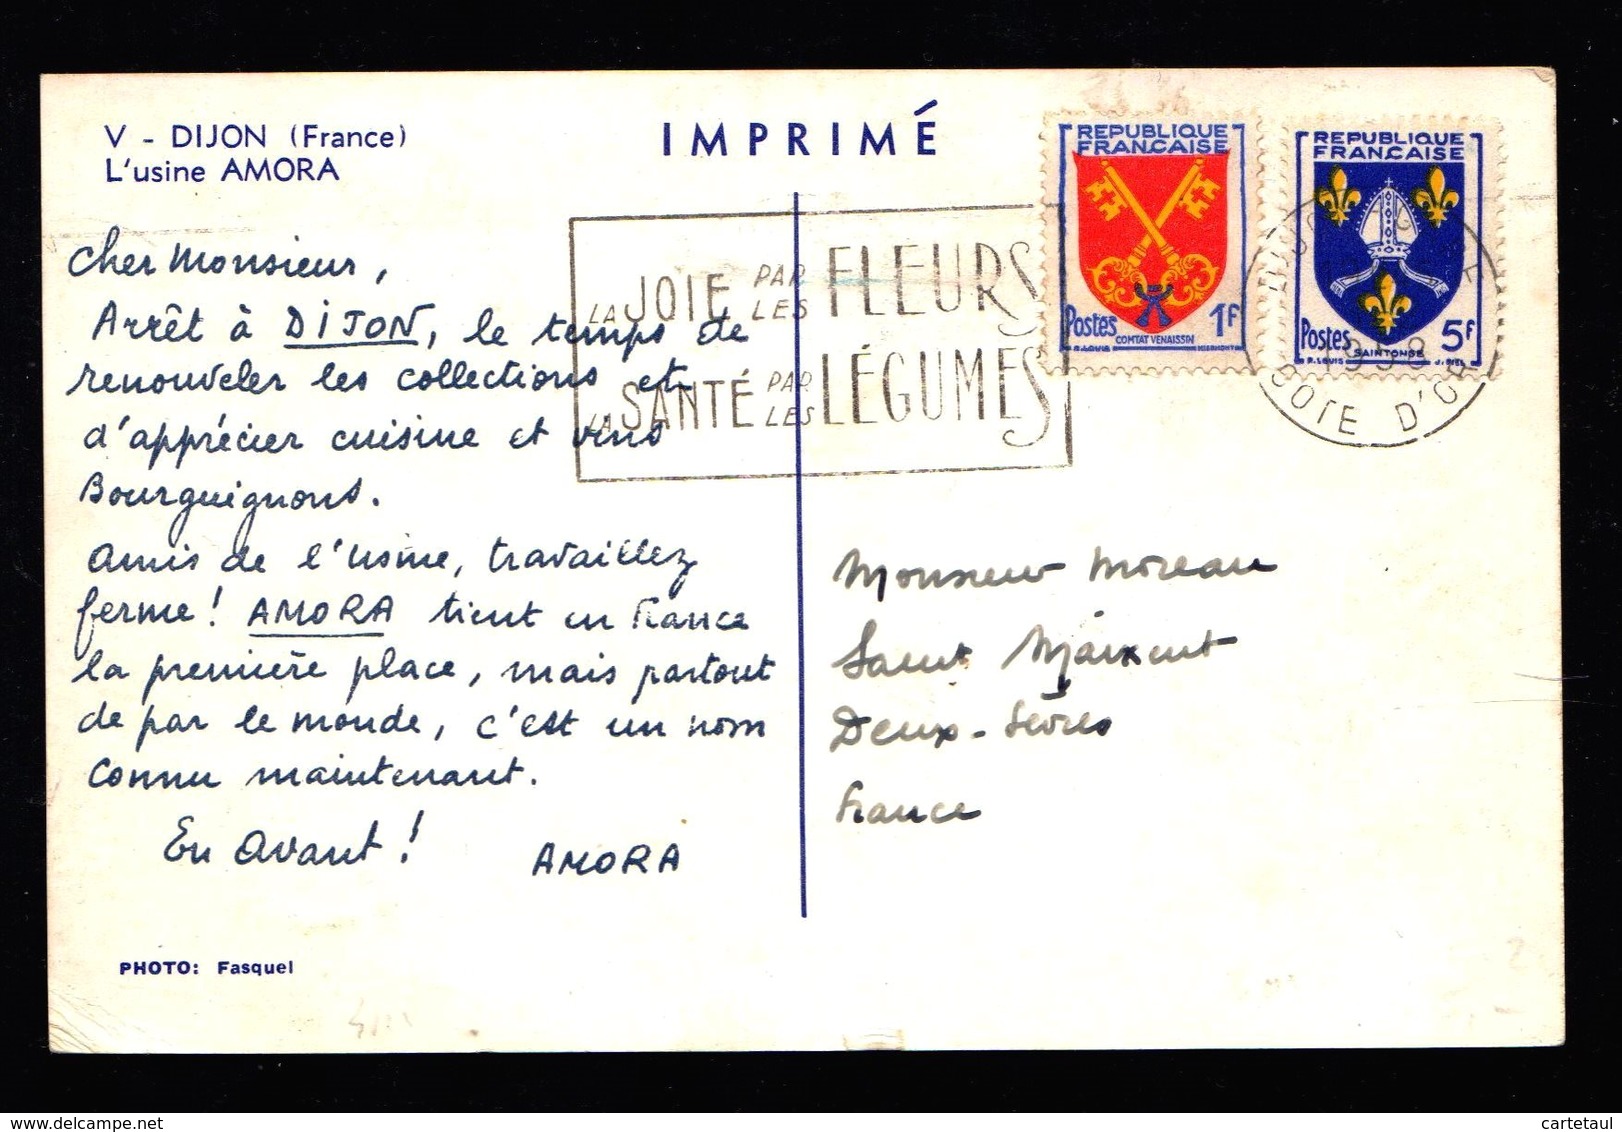 V - DIJON (France)
L'usine AMORA
IMPRIMÉ
REPUBLIQUE
FRANCAISE
Postes 1F
COMTAT VENAISSIN
REPUBLIQUE
FRANÇAISE
Postes 5F
SAINTONGE
R. LOUIS
LA JOIE PAR LES FLEURS
LA SANTÉ PAR LES LÉGUMES
COTE D'OR
Cher Monsieur,
Arrêt à DIJON, le temps de
renouveler les collections et
d'apprécier cuisine et vins
Bourguignons.
Amis de l'usine, travaillez
ferme! AMORA tient en France
la première place, mais partout
de par le monde, c'est un nom
connu maintenant.
En avant!
AMORA
PHOTO: Fasquel
Monsieur Moreau
Saint Maixent
Deux-Sèvres
France
www.delcampe.net
cartetaul